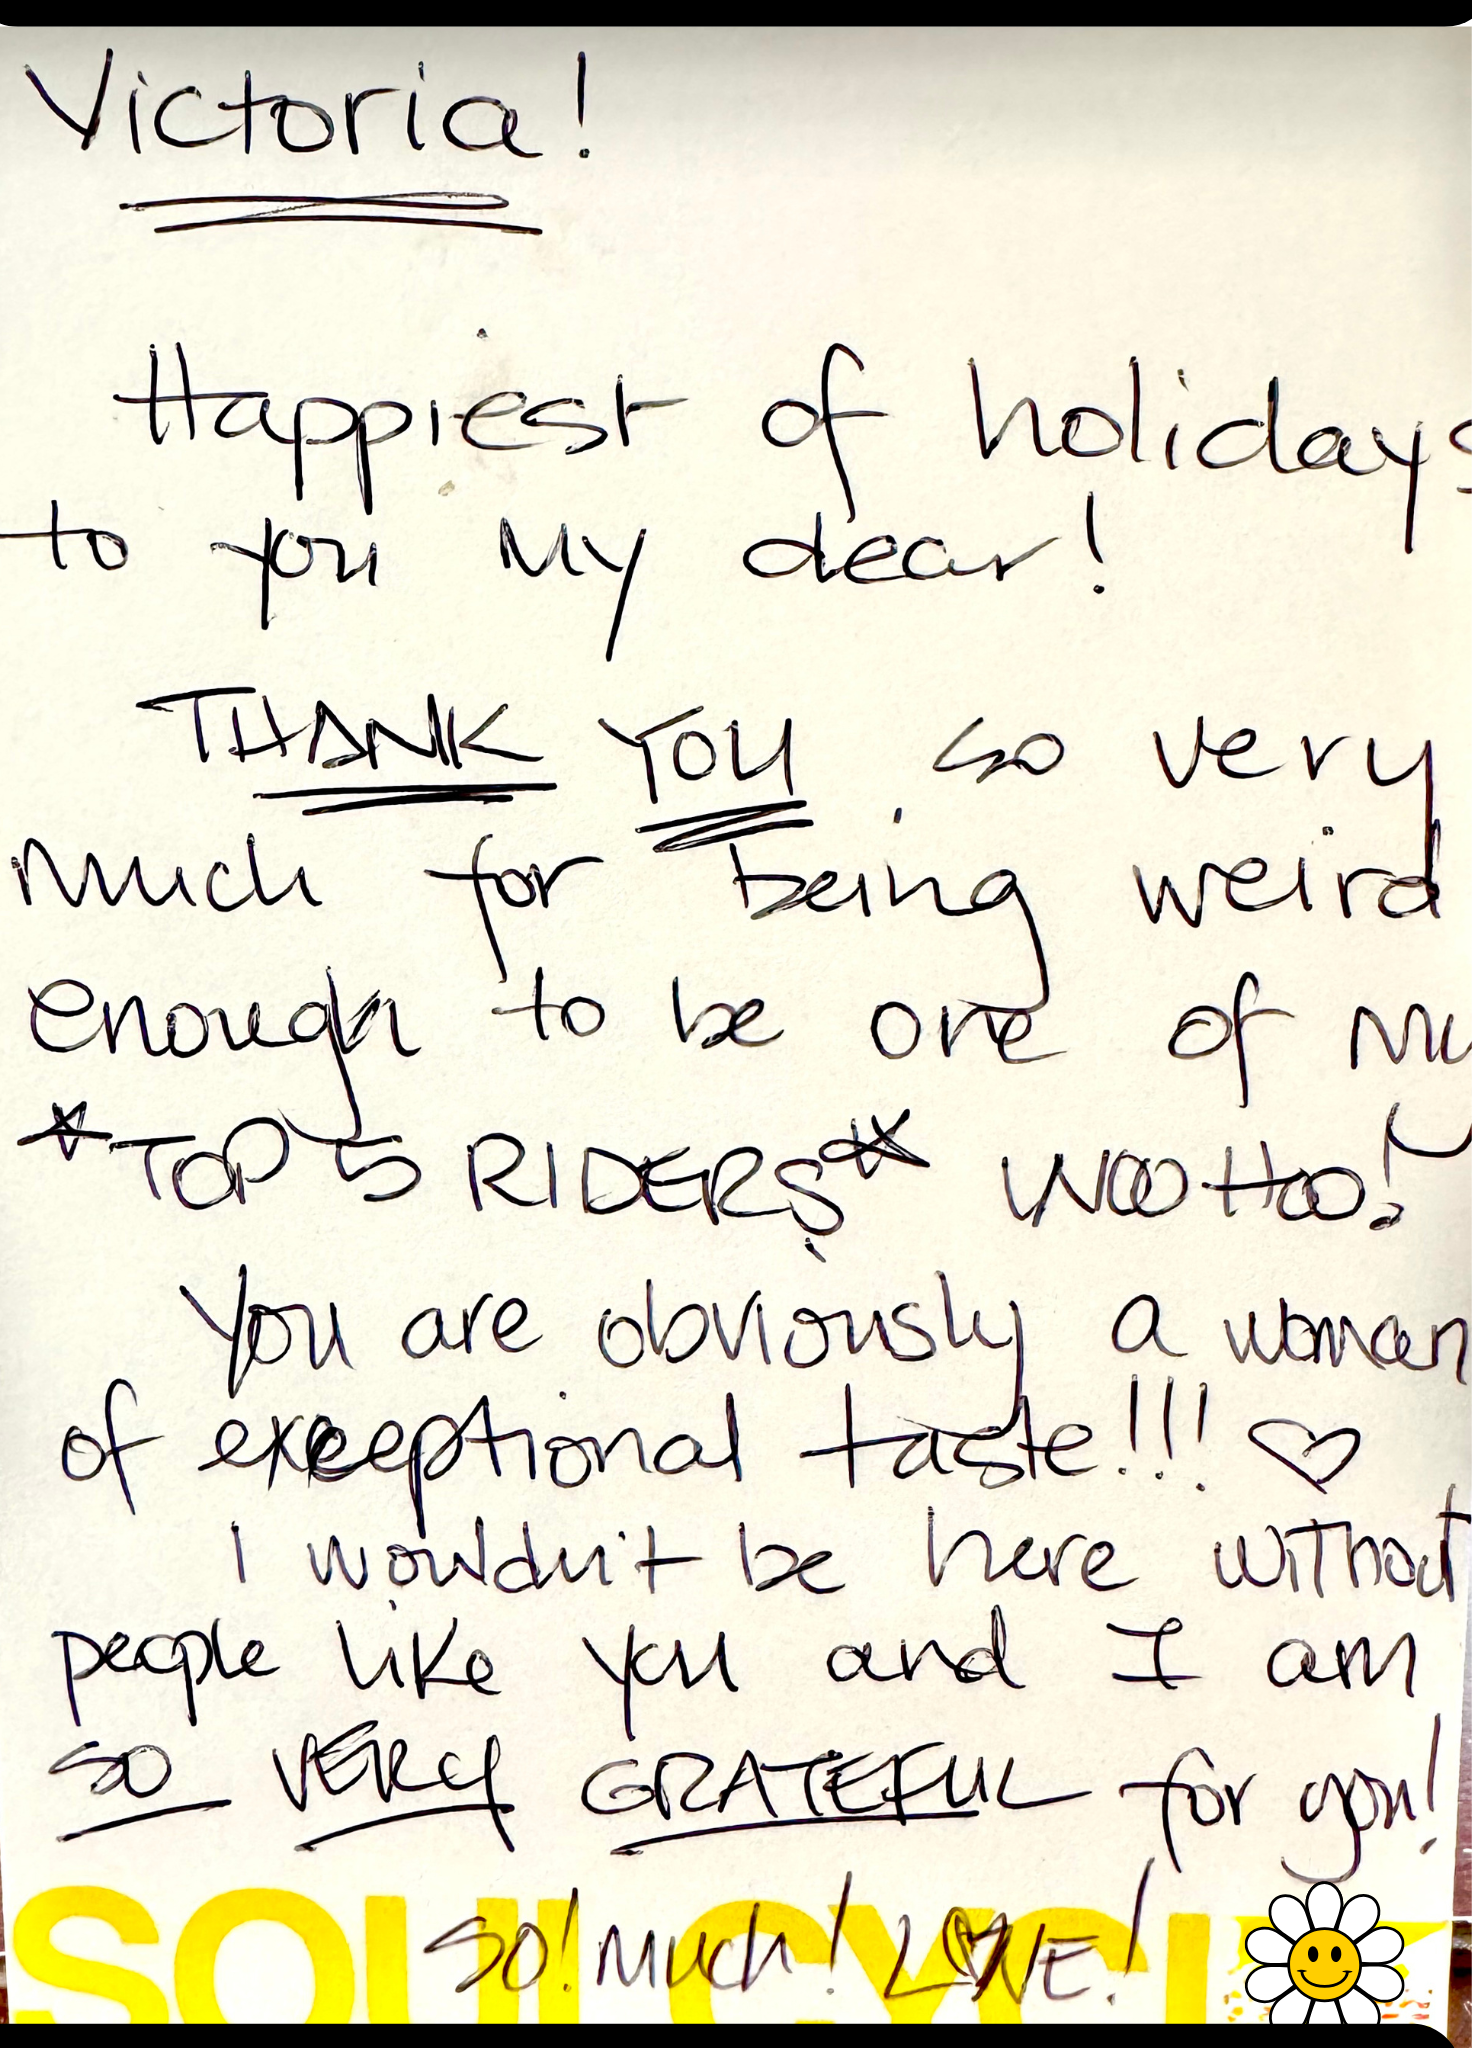 Victoria!
Happiest of holidays
to you my dear!
THANK YOU so very
much for being weird
enough to be one of my
*TOP 5 RIDERS* WOOHOO!
You are obviously a woman
of exceptional taste!!! ♡
I wouldn't be here without
people like you and I am
SO VERY GRATEFUL for you!
SO! Much! LOVE!
SOUL CYCL